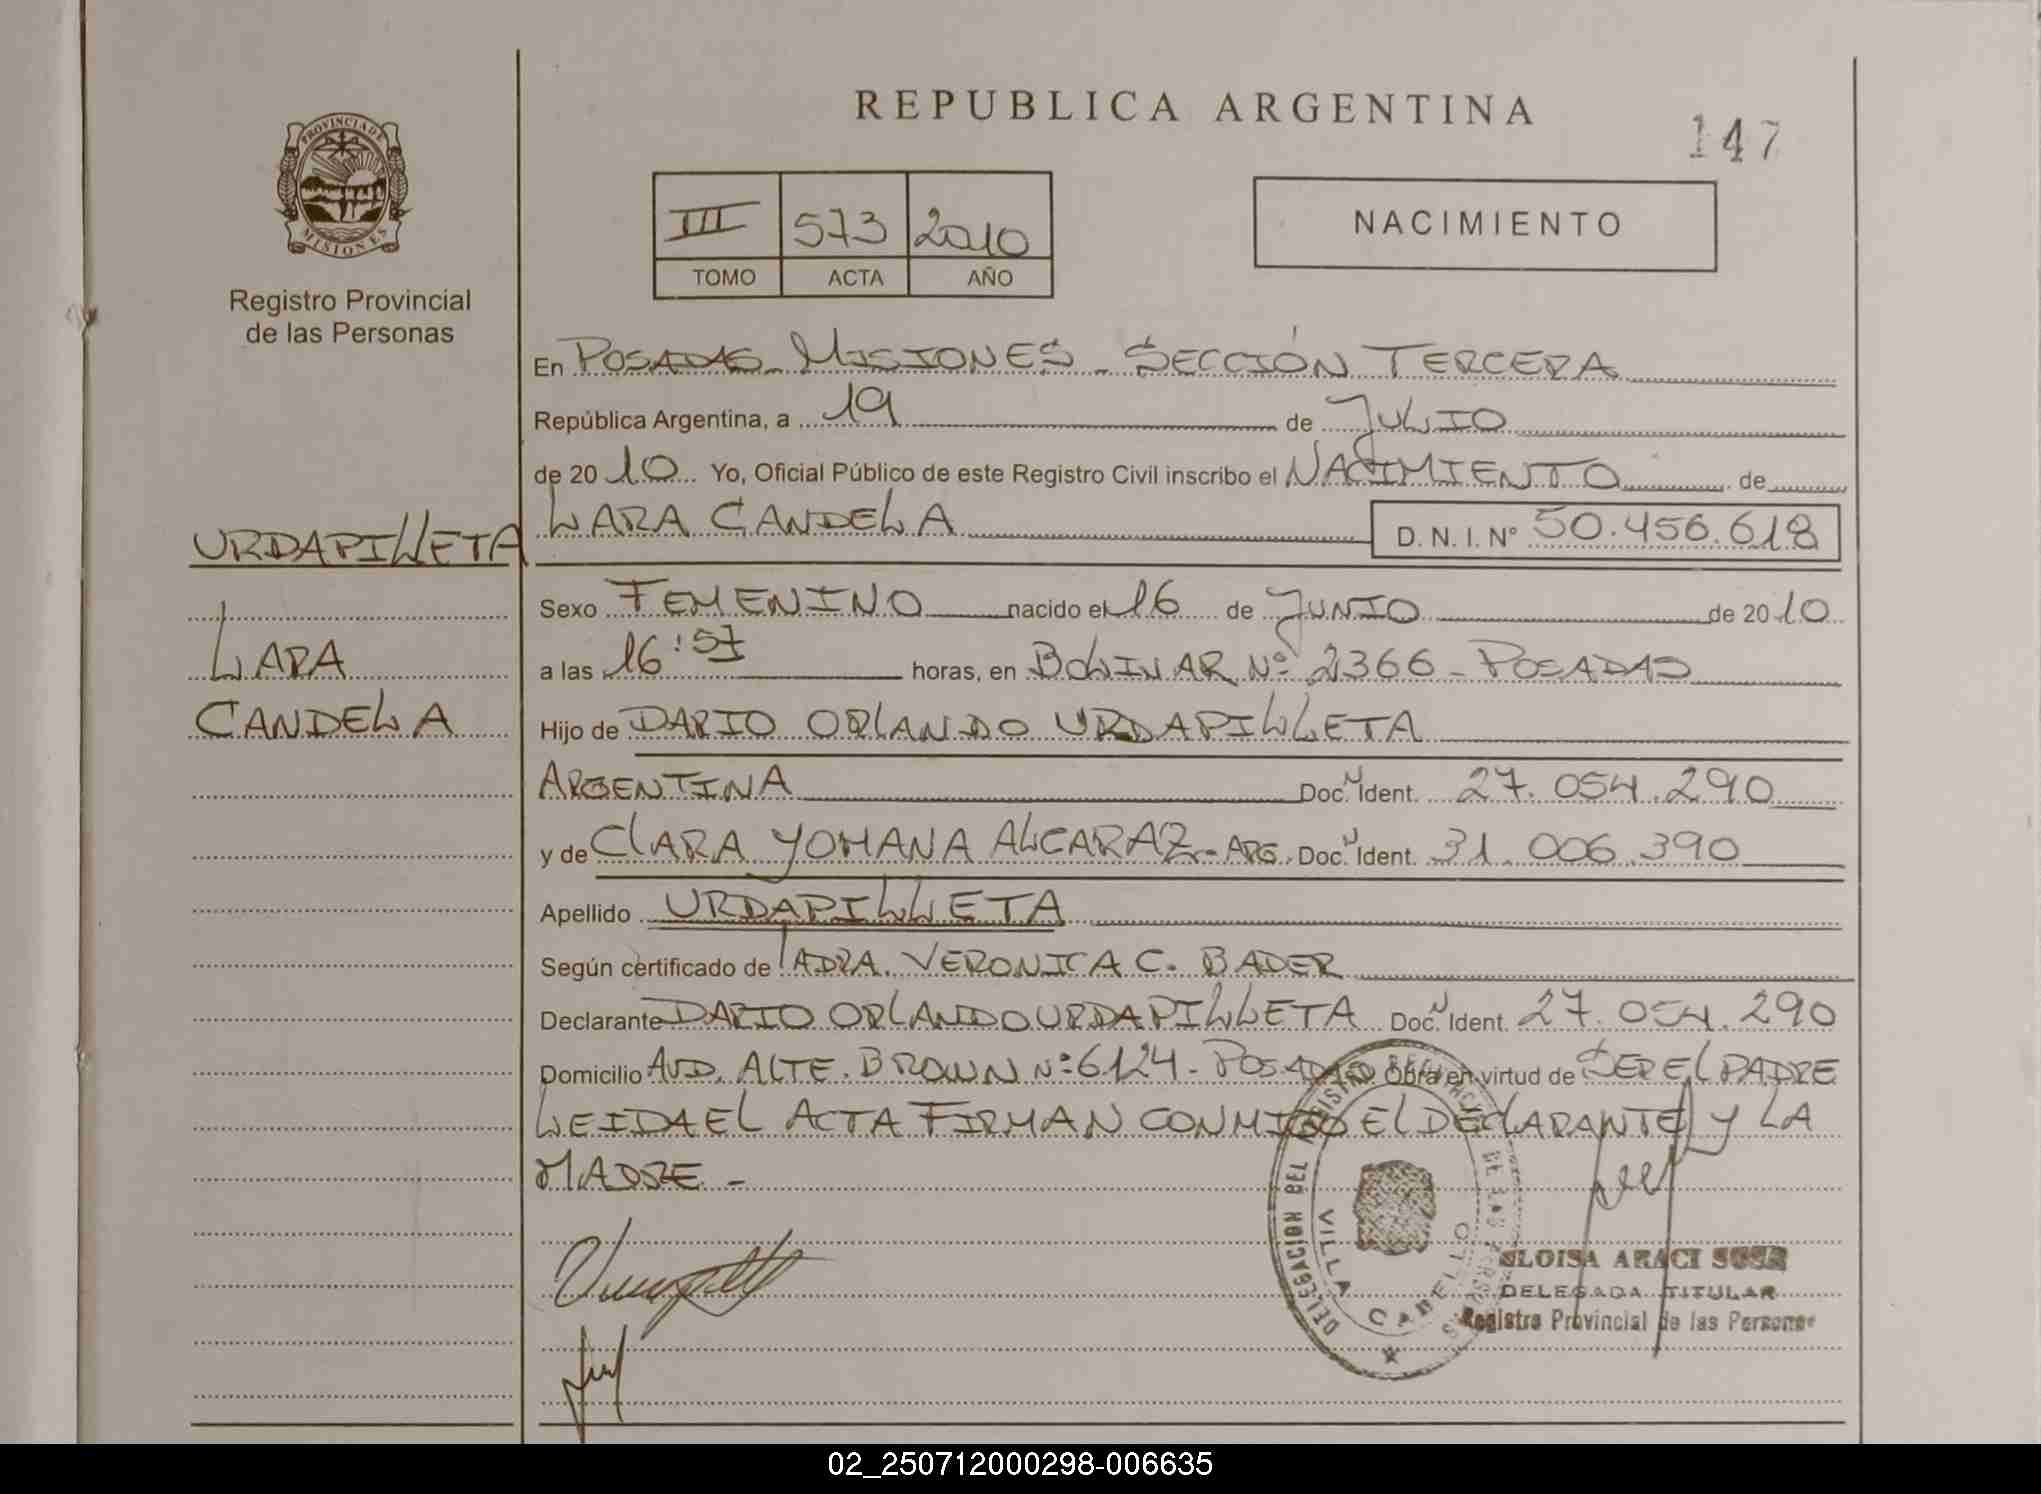 PROVINCIA DE
MISIONES
Registro Provincial
de las Personas
URDAPILLETA
LARA
CANDELA
REPUBLICA ARGENTINA
147
III 573 2010
TOMO ACTA AÑO
NACIMIENTO
En POSADAS - MISIONES - SECCIÓN TERCERA
República Argentina, a 19 de JULIO
de 2010 Yo, Oficial Público de este Registro Civil inscribo el NACIMIENTO de
LARA CANDELA D.N.I. Nº 50.456.618
Sexo FEMENINO nacido el 16 de JUNIO de 2010
a las 16:57 horas, en BOLIVAR Nº 2366 - POSADAS
Hijo de DARIO ORLANDO URDAPILLETA
ARGENTINA Doc. N Ident. 27.054.290
y de CLARA YOHANA ALCARAZ - ARG. Doc. N Ident. 31.006.390
Apellido URDAPILLETA
Según certificado de LA DRA. VERONICA C. BADER
Declarante DARIO ORLANDO URDAPILLETA Doc. N Ident. 27.054.290
Domicilio AVD. ALTE. BROWN Nº 6124 - POSADAS Obra en virtud de SER EL PADRE
LEIDA EL ACTA FIRMAN CONMIGO EL DECLARANTE Y LA
MADRE -
DELEGACION DEL REGISTRO PROVINCIAL DE LAS PERSONAS
VILLA CABELLO
ELOISA ARACI SOSA
DELEGADA TITULAR
Registro Provincial de las Personas
02_250712000298-006635